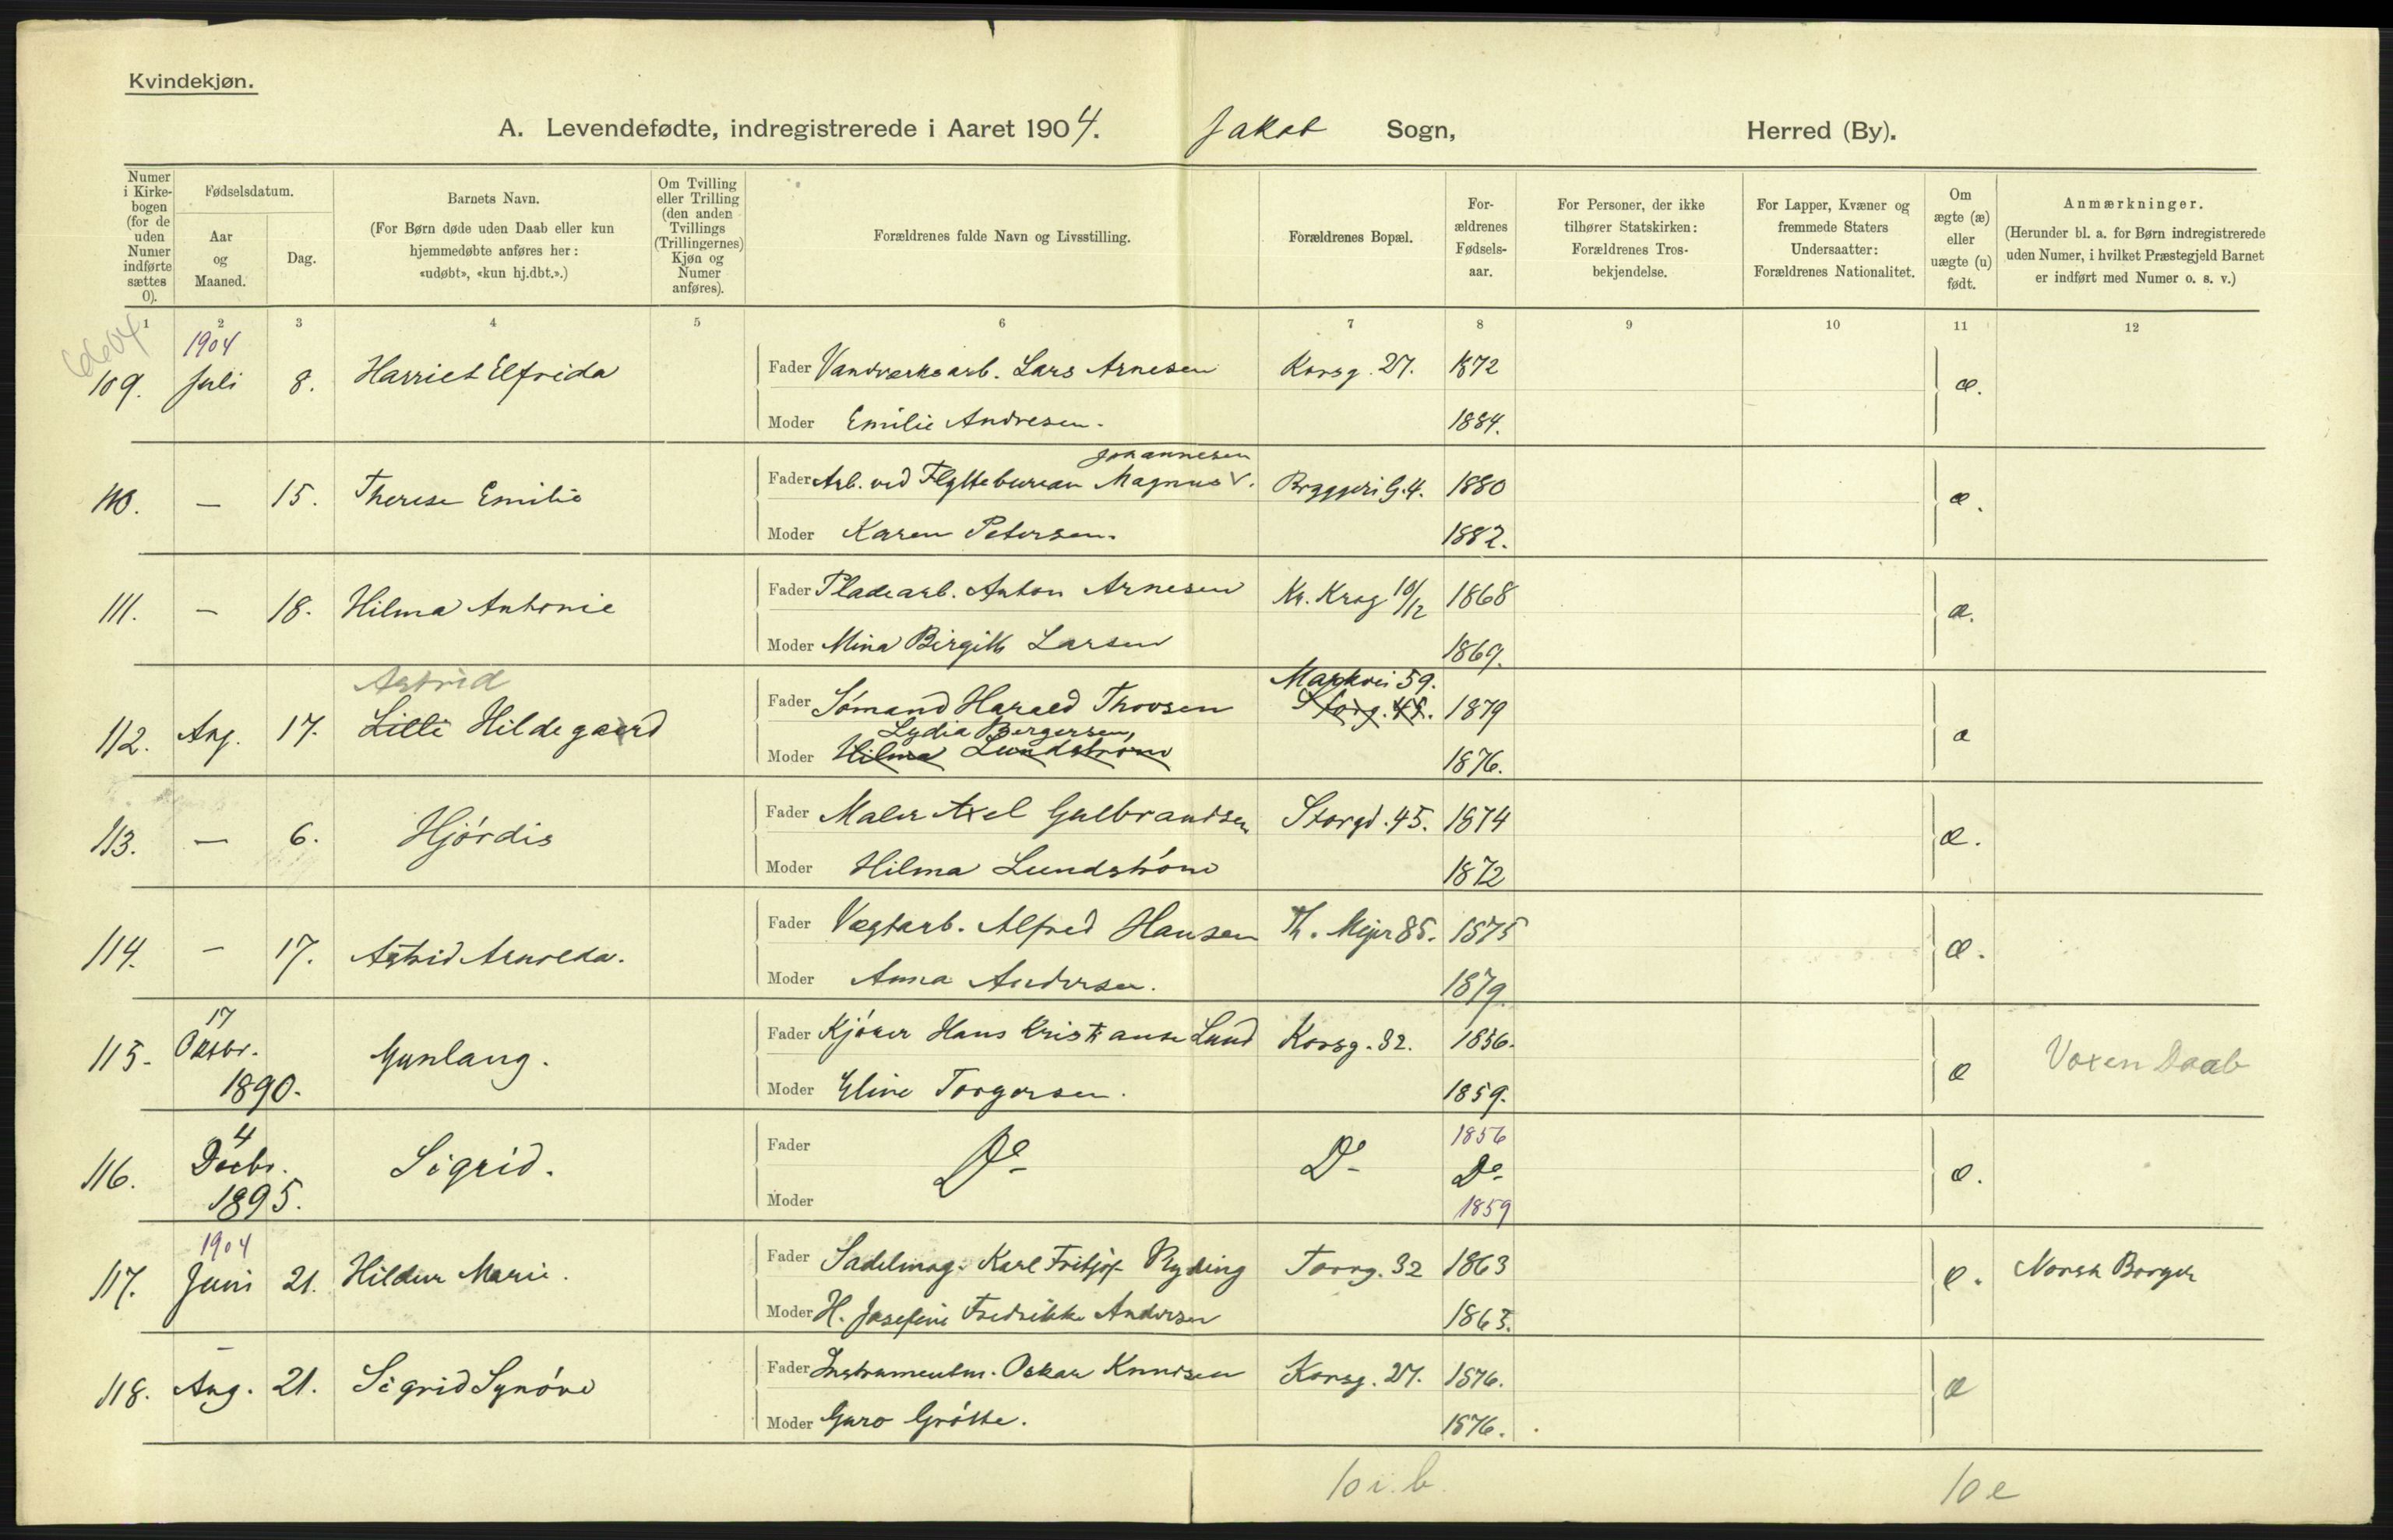 Kvindekjøn.
A. Levendefødte, indregistrerede i Aaret 1904. Jakob Sogn, Herred (By).
Numer i Kirkebogen (for de uden Numer indførte sættes 0).
Fødselsdatum.
Aar og Maaned.
Dag.
Barnets Navn.
(For Børn døde uden Daab eller kun hjemmedøbte anføres her: «udøbt», «kun hj.dbt.».)
Om Tvilling eller Trilling (den anden Tvillings (Trillingernes) Kjøn og Numer anføres).
Forældrenes fulde Navn og Livsstilling.
Forældrenes Bopæl.
Forældrenes Fødselsaar.
For Personer, der ikke tilhører Statskirken: Forældrenes Trosbekjendelse.
For Lapper, Kvæner og fremmede Staters Undersaatter: Forældrenes Nationalitet.
Om ægte (æ) eller uægte (u) født.
Anmærkninger.
(Herunder bl. a. for Børn indregistrerede uden Numer, i hvilket Præstegjeld Barnet er indført med Numer o. s. v.)
1 2 3 4 5 6 7 8 9 10 11 12
1904
109. Juli 8. Harriet Elfrida Fader Vandværksarb. Lars Arnesen Korsg. 27. 1872 æ.
Moder Emilie Andresen. 1884.
Johannesen
110. — 15. Therese Emilie Fader Arb. ved Flyttebureau Magnus V. Bryggeri G. 4. 1880 æ.
Moder Karen Petersen. 1882.
111. — 18. Hilma Antonie Fader Pladearb. Anton Arnesen Kr. Krog 10/12 1868 æ.
Moder Mina Birgitte Larsen 1869.
Astrid Markvei 59.
112. Aug. 17. Lilli Hildegaard Fader Sømand Harald Thovsen Storg. 45. 1879 æ
Lydia Bergersen,
Moder Hilma Lundstrøm 1876.
113. — 6. Hjørdis Fader Maler Axel Gulbrandsen Storgd. 45. 1874 æ.
Moder Hilma Lundstrøm 1872
114. — 17. Astrid Arnolda. Fader Vægtarb. Alfred Hansen Th. Mejer 85. 1875 æ.
Moder Anna Andersen. 1879.
17
115. Oktbr. 1890. Gunlaug. Fader Kjører Hans Kristianse Lund Korsg. 32. 1856. æ Voxen Daab
Moder Eline Torgersen. 1859.
4 1856
116. Decbr. 1895. Sigrid. Fader Do Do Do æ.
Moder 1859
1904
117. Juni 21. Hildur Marie. Fader Sadelmag. Karl Fritjof Ryding Torvg. 32 1863 æ. Norsk Borger
Moder H. Josefine Fredrikke Andersen 1863.
118. Aug. 21. Sigrid Synøve Fader Instrumentm. Oskar Knudsen Korsg. 27. 1876. æ
Moder Guro Grøtte. 1876.
10 i. b. 10 e